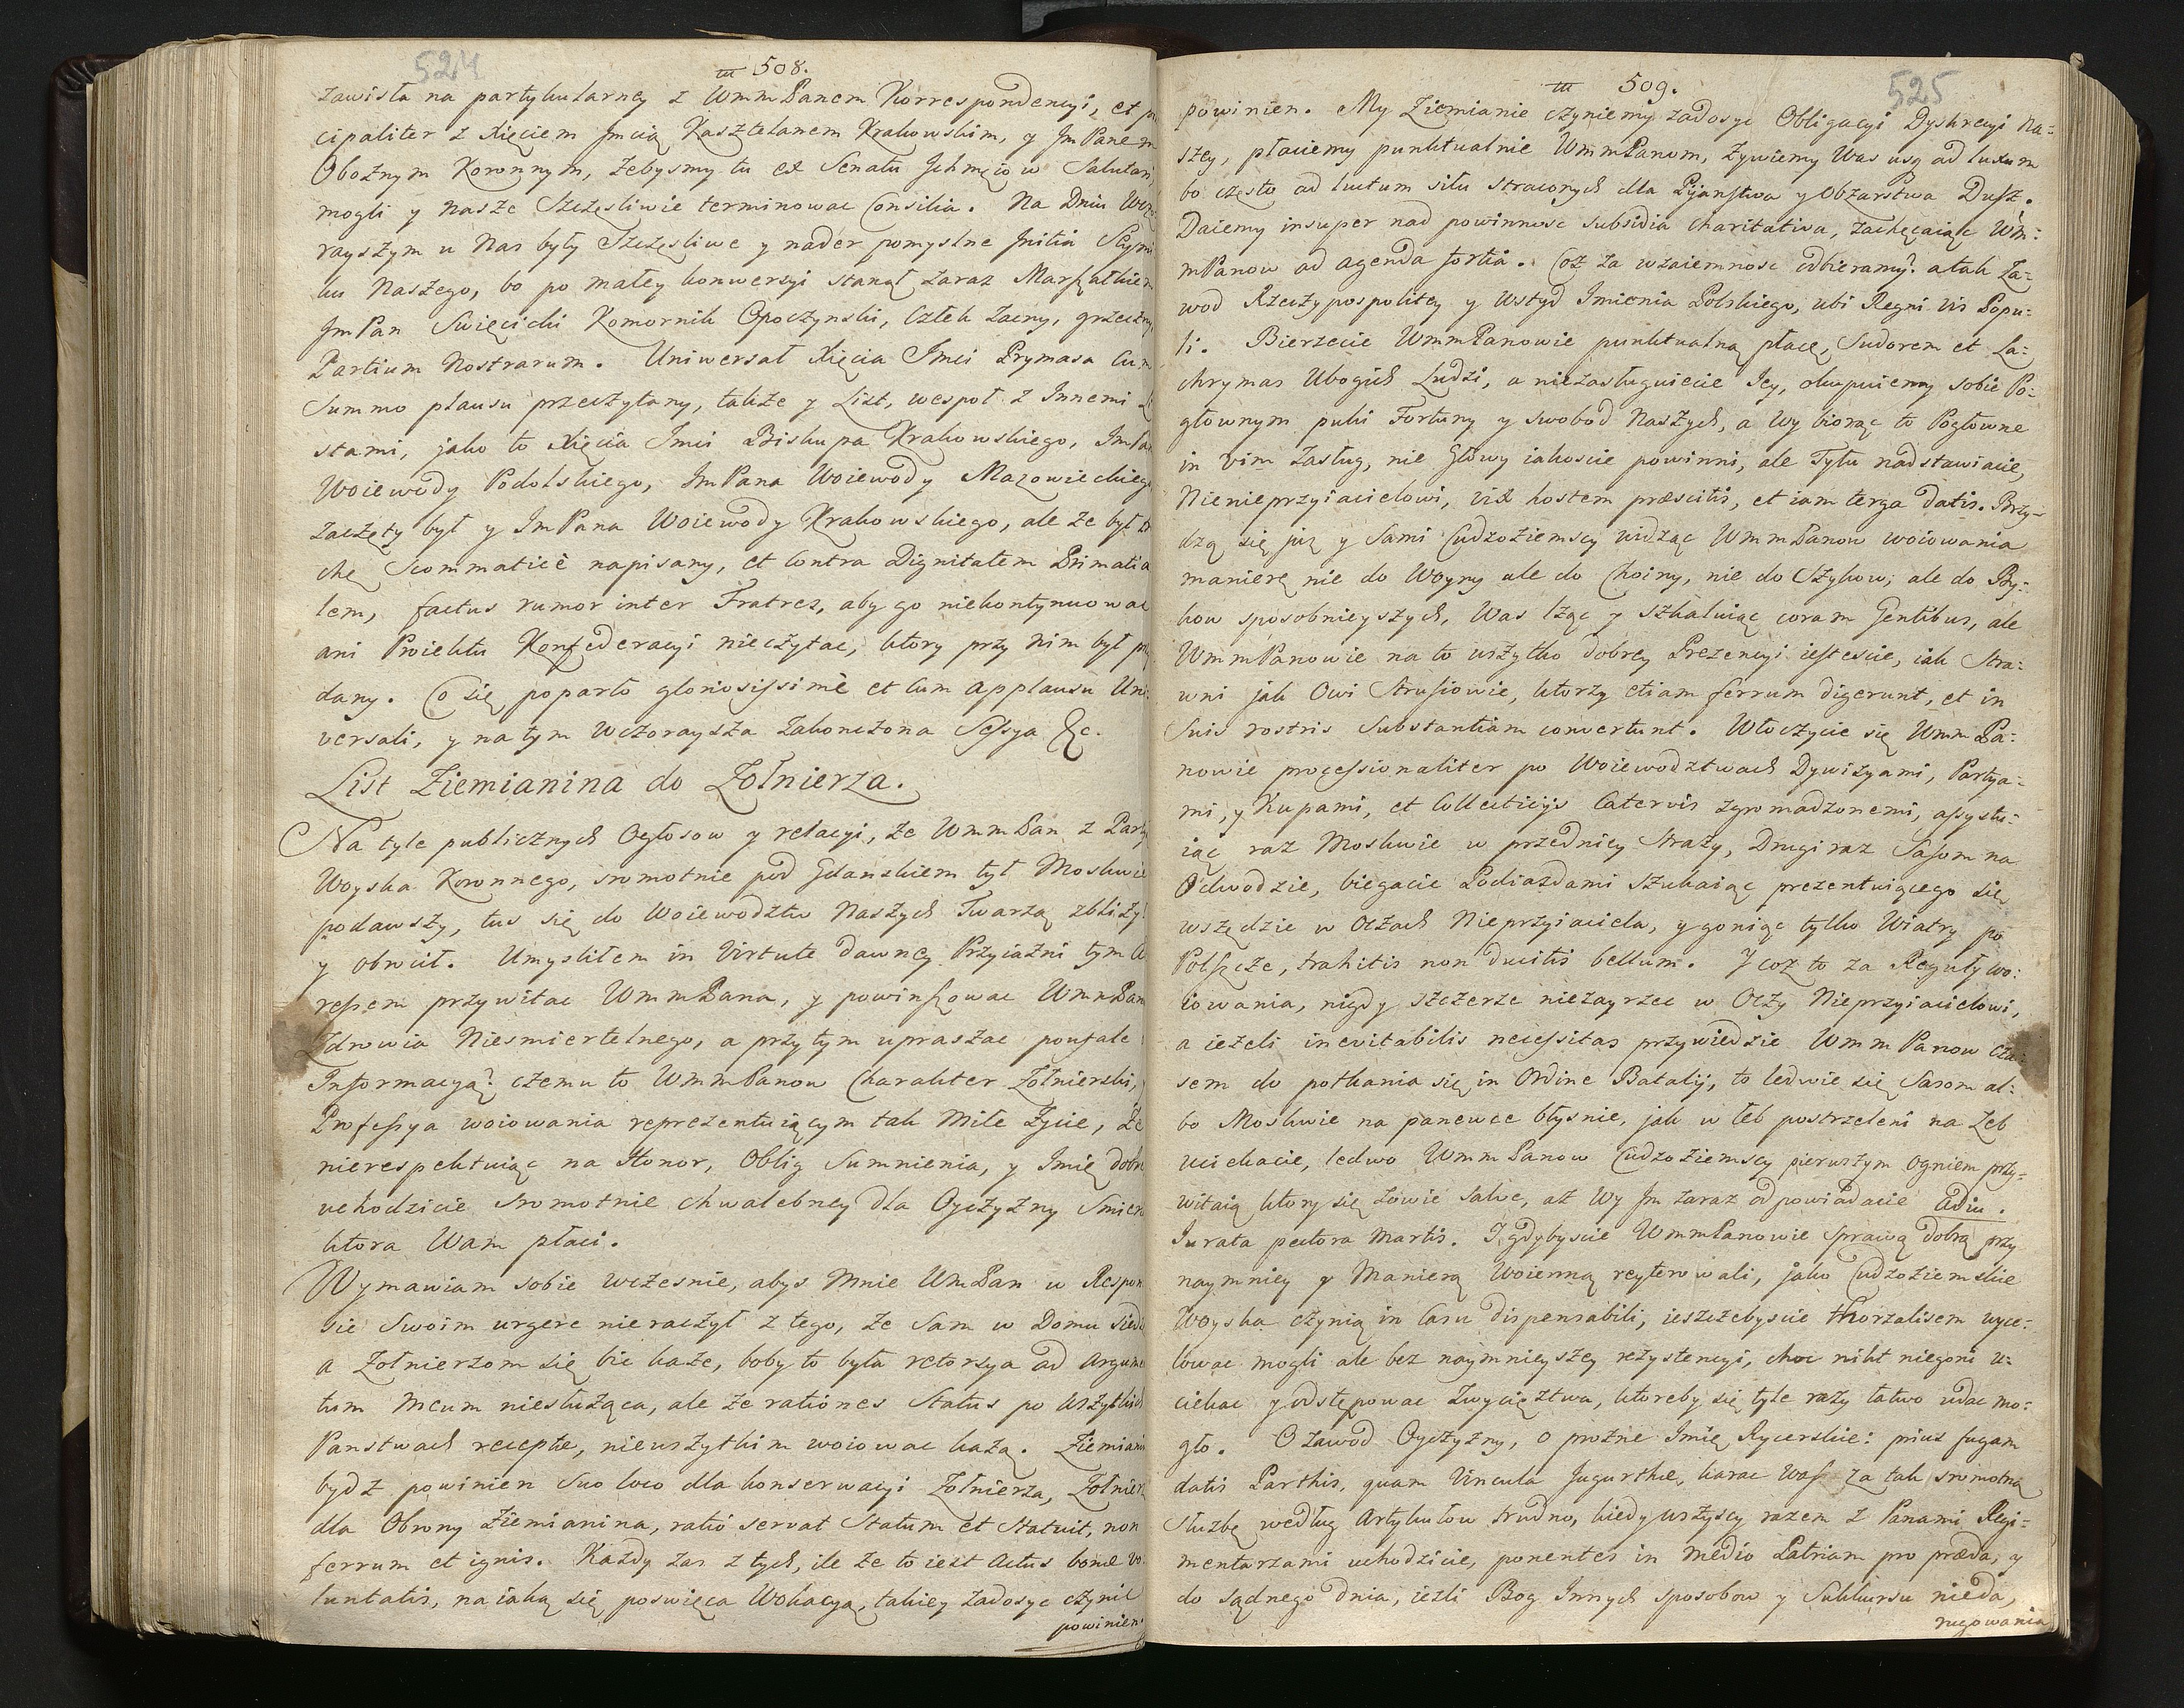 524
508.
zawisła na partykularney z WmmPanem Korrespondencyi, et
cipaliter z Xięciem Jmcią Kasztelanem Krakowskim, y JmPanem
Oboznym Koronnym, zebysmy tu ex Senatu Ichmciow Salutari
mogli y nasze szczęsliwie terminowac Consilia. Na Dniu Wczo
rayszym u Nas były Szczęsliwe y nader pomyslne Initia Seymi
ku Naszego, bo po małey konwersyi stanął zaraz Marszałkiem
JmPan Swięcicki Komornik Opoczynski, Człek Zacny, grzeczny
Partium Nostrarum. Uniwersał Xięcia Jmci Prymasa cum
Summo plausu przeczytany, także y List, wespoł z Innemi Li
stami, jako to Xięcia Jmci Biskupa Krakowskiego, JmPana
Woiewody Podolskiego, JmPana Woiewody Mazowieckiego
zaczęty był y JmPana Woiewody Krakowskiego, ale ze był
chę Scommaticè napisany, et Contra Dignitatem Primatia
lem, factus rumor inter Fratres, aby go niekontynuowac
ani Proiektu Konfederacyi nieczytac, ktory przy nim był
dany. Co się poparło gloriosissimè et cum applausu Uni
versali, y na tym wczoraysza zakonczona Sessya &c.
List Ziemianina do Zołnierza.
Na tyle publicznych Ogłosow y relacyi, że WmmPan z Party
Woyska Koronnego, sromotnie pod Gdanskiem tył Moskwie
podawszy, tus się do Woiewodztw Naszych Twarzą zbliżył
y obrocił. Umysliłem in Virtute dawney Przyiazni tym
ressem przywitac WmmPana, y powinszowac WmmPan
Zdrowia Niesmiertelnego, a przytym upraszac poufale
Informacyą? czemu to WmmPanow Charakter Zołnierski,
Professya woiowania reprezentuiącym tak Miłe Zycie, że
nierespektuiąc na Honor, Oblig Sumnienia, y Imię dobre
uchodzicie sromotnie chwalebney dla Oyczyzny Smierci
ktora Wam płaci.
Wymawiam sobie wczesnie, abys Mnie WmPan w Respon
sie Swoim urgere nieraczył z tego, że Sam w Domu siedzę
a Zołnierzom się bic każę, boby to była retorsya ad Argumen
tum Meum niesłużąca, ale ze rationes Status po wszytkich
Panstwach receptæ, niewszytkim woiowac każą. Ziemianin
bydz powinien Suo loco dla konserwacyi Zołnierza, Zołnierz
dla Obrony Ziemianina, ratio servat Statum et Statuit, non
ferrum et ignis. Kazdy zas z tych, ile ze to iest Actus bonæ vo
luntatis, na iaką się poswięca Wokacyą, takiey zadosyc czynic
powinien.
525
509.
powinien. My Ziemianie czyniemy zadosyc Obligacyi Dyskrecyi Na:
szey, płaciemy punktualnie WmmPanom, żywiemy Was usq ad luxum
bo często ad luctum siłu straconych dla Pijanstwa y Obżarstwa Dusz.
Daiemy insuper nad powinnosc subsidia charitativa, zachęcaiąc Wm:
mPanow ad agenda fortia. Coż za wzaiemnosc odbieramy? a tak Za:
wod Rzeczypospolitey y Wstyd Imienia Polskiego, ubi Regni vis Popu:
li. Bierzecie WmmPanowie punktualną płacę, Sudorem et La:
chrymas Ubogich Ludzi, a niezasługuiecie Jey, okupuiemy sobie Po:
głownym puki Fortuny y swobod Naszych, a Wy biorąc to Pogłowne
in vim Zasług, nie Głowy iakoscie powinni, ale Tyłu nadstawiacie,
Nienieprzyiacielowi, vix hostem præscitis, et iam terga datis. Brzy-
dzą się już y Sami Cudzoziemscy widząc WmmPanow woiowania
manierę nie do Woyny ale do Choiny, nie do Szykow, ale do By:
kow sposobnieyszych, Was lżąc y szkaluiąc coram Gentibus, ale
WmmPanowie na to wszytko dobrey Prezencyi iestescie, iak Stra:
wni jak Owi Strusiowie, ktorzy etiam ferrum digerunt, et in
Suis rostris Substantiam convertunt. Włoczycie się WmmPa:
nowie processionaliter po Woiewodztwach Dywizyami, Partya:
mi, y Kupami, et Collecticijs Catervis zgromadzonemi, assystu:
iąc raz Moskwie w przedniey Straży, Drugi raz Sasom na
Odwodzie, biegacie Podiazdami szukaiąc prezentuiącego się
wszędzie w Oczach Nieprzyiaciela, y goniąc tylko Wiatry po
Polszcze, trahitis non ducitis bellum. Y coż to za Reguły wo:
iowania, nigdy szczerze niezayrzec w Oczy Nieprzyiacielowi,
a ieżeli inevitabilis necessitas przywiedzie WmmPanow cza:
sem do potkania się in Ordine Batalij, to ledwie się Sasom al:
bo Moskwie na panewce błysnie, jak w łeb postrzeleni na Łeb
uciekacie, ledwo WmmPanow Cudzoziemscy pierwszym Ogniem przy:
witaią ktory się zowie Salve, aż Wy Jm zaraz odpowiadacie Adiu.
Jurata pectora Martis. I gdybyscie WmmPanowie Sprawą dobrą przy
naymniey y Manierą Woienną reyterowali, jako Cudzoziemskie
Woyska czynią in Casu dispensabili, ieszczebyscie tkorzalisem wyce:
lowac mogli ale bez naymnieyszey rezystencyi, choc nikt niegoni u:
ciekac y odstępowac Zwycięztwa, ktoreby się tyle razy łatwo udac mo:
gło. O zawod Oyczyzny, o prożne Imię Rycerskie: prius fugam
datis Parthis, quam Vincula Jugurthæ, karac Was za tak sromotną
Służbę według Artykułow trudno, kiedy wszyscy razem z Panami Regi:
mentarzami uchodzicie, ponentes in Medio Patriam pro præda, y
do sądnego dnia, iezli Bog Innych sposobow y Sukkursu nieda,
rugowania